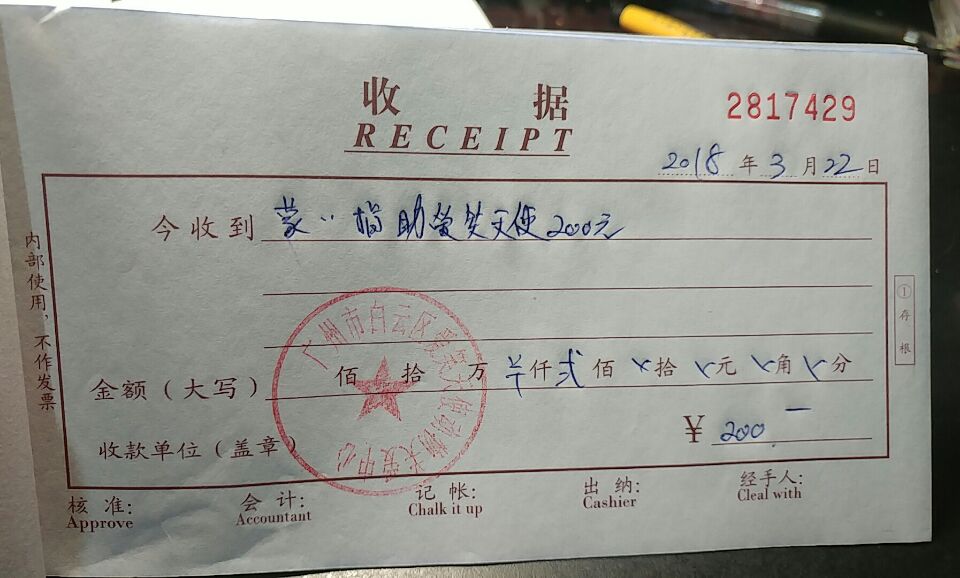 收 据
2817429
RECEIPT
2018 年 3 月 22 日
今收到 蒙 捐助 笑天使200元
内部使用，不作发票
① 存根
广州市白云区 笑天使动物关爱中心
金额（大写） 佰 拾 万 仟 弍 佰 拾 元 角 分
¥ 200
收款单位（盖章）
核 准: 会 计: 记 帐: 出 纳: 经手人:
Approve Accountant Chalk it up Cashier Cleal with